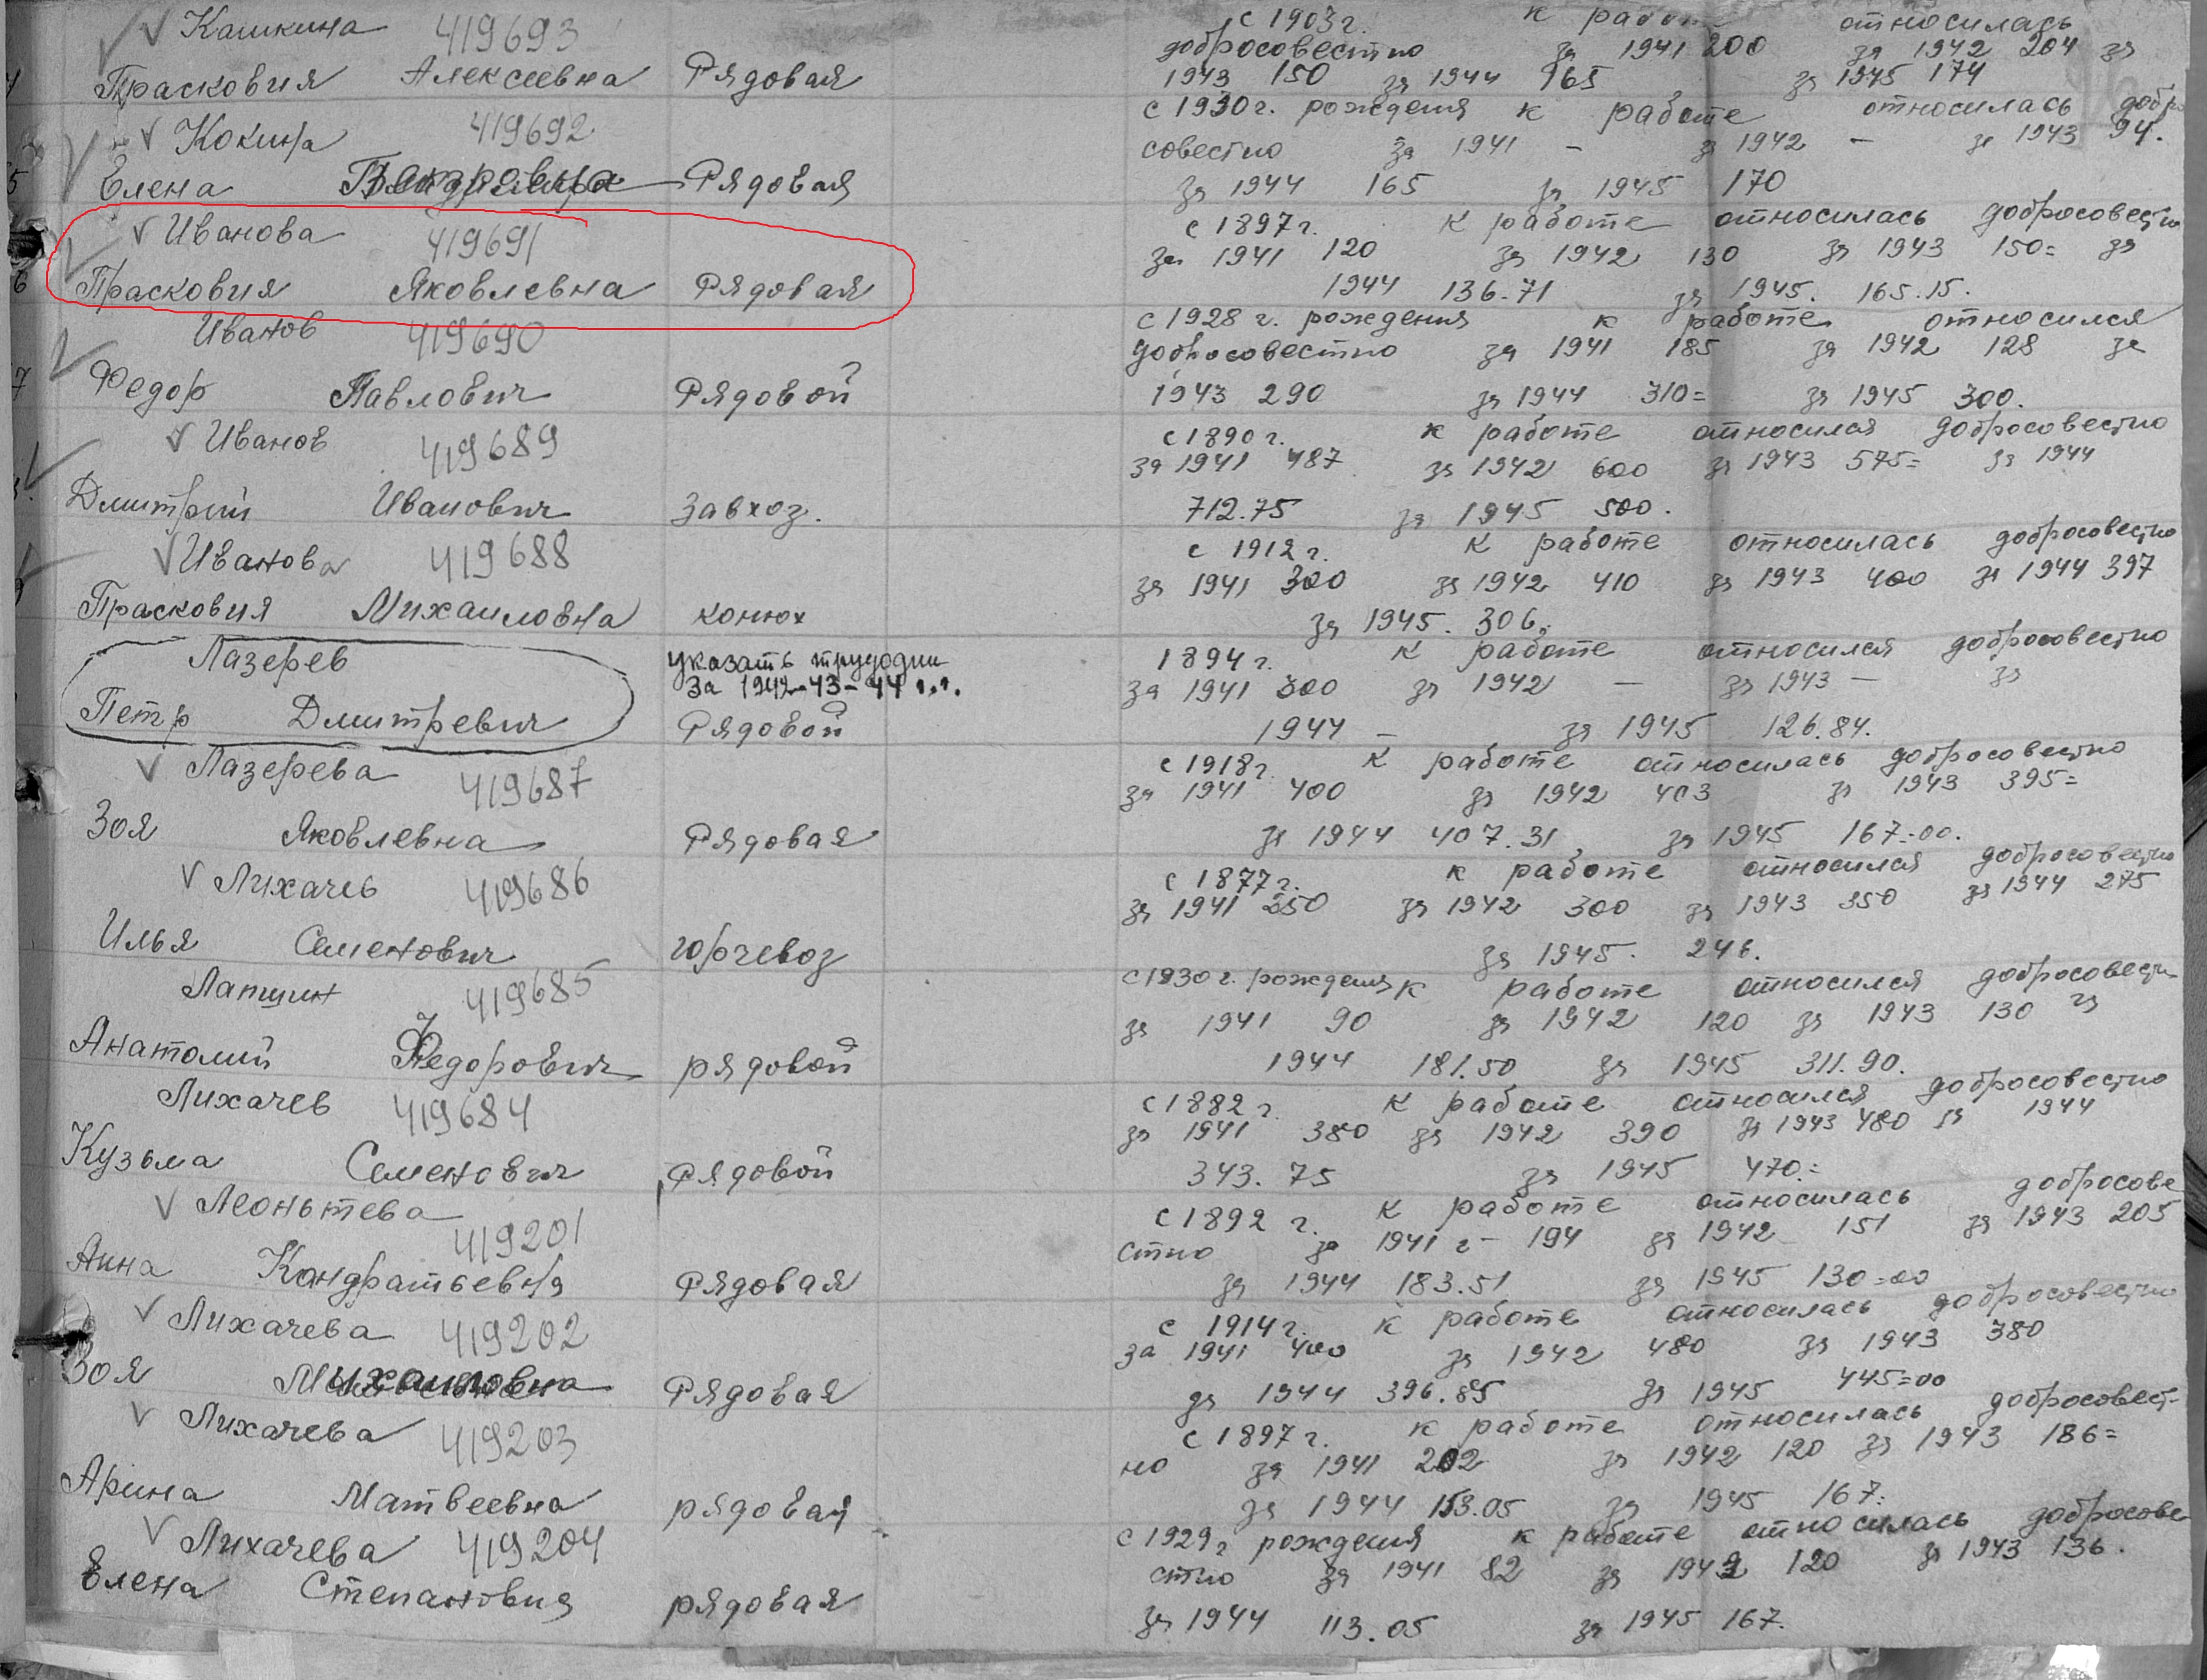 Кашкина 419693 с 1903г. к работе относилась
добросовестно за 1941 200 за 1942 204 за
Прасковия Алексеевна Рядовая 1943 150 за 1944 165 за 1945 174
Кокина 419692 с 1930г. рождения к работе относилась добро
совестно за 1941 - за 1942 - за 1943 94.
Елена Рядовая за 1944 165 за 1945 170
Иванова 419691 с 1897г. к работе относилась добросовестно
за 1941 120 за 1942 130 за 1943 150= за
Прасковия Яковлевна Рядовая 1944 136.71 за 1945. 165.15.
Иванов 419690 с 1928 г. рождения к работе относился
добросовестно за 1941 185 за 1942 128 за
7 Федор Павлович Рядовой 1943 290 за 1944 310= за 1945 300.
Иванов 419689 с 1890г. к работе относился добросовестно
за 1941 487 за 1942 600 за 1943 575= за 1944
Дмитрий Иванович Завхоз. 712.75 за 1945 500.
Иванова 419688 с 1912г. к работе относилась добросовестно
за 1941 300 за 1942 410 за 1943 400 за 1944 397
Прасковия Михаиловна конюх за 1945. 306.
Лазерев указать трудодни 1894г. к работе относился добросовестно
за 1942-43-44 г.г. за 1941 300 за 1942 - за 1943 - за
Петр Дмитревич Рядовой 1944 - за 1945 126.84.
Лазерева 419687 с 1918г. к работе относилась добросовестно
за 1941 400 за 1942 403 за 1943 395=
Зоя Яковлевна Рядовая за 1944 407.31 за 1945 167=00.
Лихачев 419686 с 1877г. к работе относился добросовестно
за 1941 250 за 1942 300 за 1943 350 за 1944 275
Илья Семенович горчевоз за 1945. 246.
Лапшин 419685 с 1930г. рождения к работе относился добросовестн
за 1941 90 за 1942 120 за 1943 130 за
Анатолий Федорович рядовой 1944 181.50 за 1945 311.90.
Лихачев 419684 с 1882г. к работе относился добросовестно
за 1941 380 за 1942 390 за 1943 480 за 1944
Кузьма Семенович Рядовой 343.75 за 1945 470.=
Леоньтева 419201 с 1892 г. к работе относилась добросове
стно за 1941 г- 194 за 1942 151 за 1943 205
Анна Кандратьевна Рядовая за 1944 183.51 за 1945 130=00
Лихачева 419202 с 1914г. к работе относилась добросовестно
за 1941 400 за 1942 480 за 1943 380
Зоя Михаиловна Рядовая за 1944 396.85 за 1945 445=00
Лихачева 419203 с 1897г. к работе относилась добросовест-
но за 1941 202 за 1942 120 за 1943 186=
Арина Матвеевна рядовая за 1944 153.05 за 1945 167.=
Лихачева 419204 с 1929г рождения к работе относилась добросове
стно за 1941 82 за 1942 120 за 1943 136.
Елена Степановна рядовая за 1944 113.05 за 1945 167.